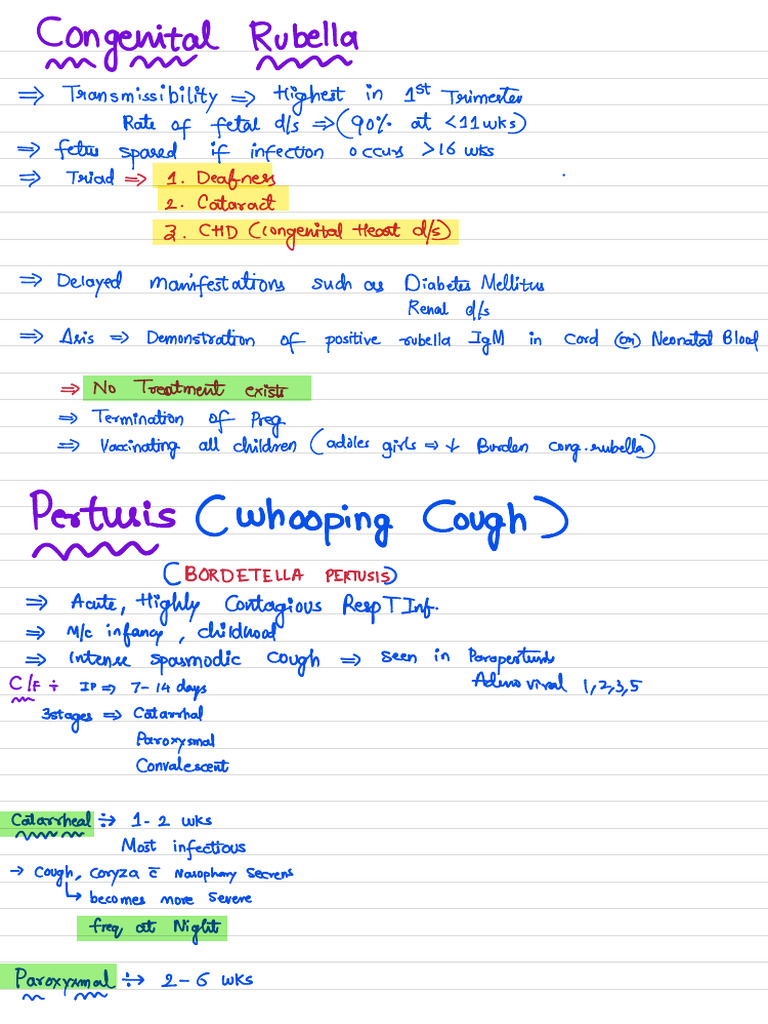 Congenital Rubella
⇒ Transmissibility ⇒ Highest in 1st Trimester
Rate of fetal d/s ⇒ (90% at <11 wks)
⇒ fetus spared if infection occurs >16 wks
⇒ Triad ⇒ 1. Deafness
2. Cataract
3. CHD (Congenital Heart d/s)
⇒ Delayed manifestations such as Diabetes Mellitus
Renal d/s
⇒ Δsis ⇒ Demonstration of positive rubella IgM in cord (or) Neonatal Blood
⇒ No Treatment exists
⇒ Termination of Preg
⇒ Vaccinating all children (adoles girls ⇒ ↓ Burden cong. rubella)
Pertusis (Whooping Cough)
(BORDETELLA PERTUSIS)
⇒ Acute, Highly Contagious Resp T Inf.
⇒ M/c infancy, childhood
⇒ Intense spasmodic cough ⇒ seen in Parapertusis
Adenoviral 1,2,3,5
C/F ÷ IP ⇒ 7-14 days
3stages ⇒ Catarrhal
Paroxysmal
Convalescent
Catarrheal ÷ 1-2 wks
Most infectious
→ Cough, coryza c̄ Nasophary Secrens
↳ becomes more severe
freq at Night
Paroxyxmal ÷ 2-6 wks